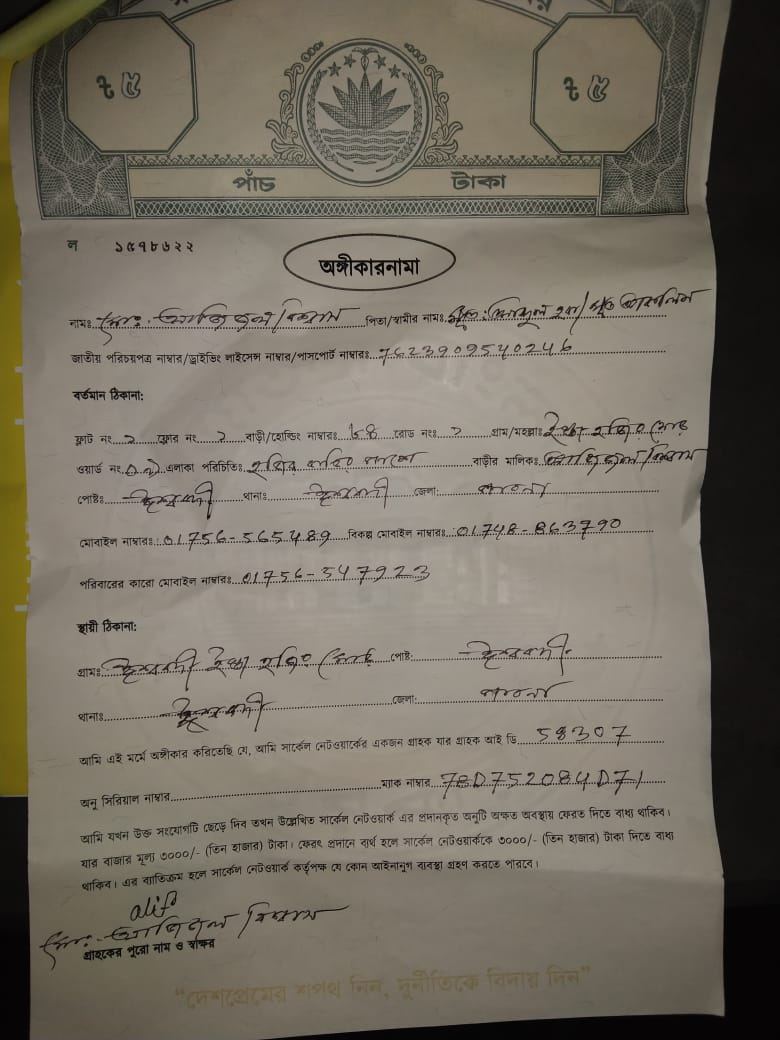 ৳ ৫ ৳ ৫
পাঁচ টাকা
ল ১৫৭৮৬২২
অঙ্গীকারনামা
নামঃ মোঃ আজিজল বিশ্বাস পিতা/স্বামীর নামঃ মৃত
জাতীয় পরিচয়পত্র নাম্বার/ড্রাইভিং লাইসেন্স নাম্বার/পাসপোর্ট নাম্বারঃ 7623909540246
বর্তমান ঠিকানা:
ফ্লাট নং ফ্লোর নং বাড়ী/হোল্ডিং নাম্বারঃ রোড নংঃ গ্রাম/মহল্লাঃ
ওয়ার্ড নং এলাকা পরিচিতিঃ বাড়ীর মালিকঃ আজিজল বিশ্বাস
পোষ্টঃ ঈশ্বরদী থানাঃ ঈশ্বরদী জেলা: পাবনা
মোবাইল নাম্বারঃ 01756-565489 বিকল্প মোবাইল নাম্বারঃ 01748-863790
পরিবারের কারো মোবাইল নাম্বারঃ 01756-547923
স্থায়ী ঠিকানা:
গ্রামঃ ঈশ্বরদী পোষ্ট: ঈশ্বরদী
থানাঃ ঈশ্বরদী জেলা: পাবনা
আমি এই মর্মে অঙ্গীকার করিতেছি যে, আমি সার্কেল নেটওয়ার্কের একজন গ্রাহক যার গ্রাহক আই ডি 58307
অনু সিরিয়াল নাম্বার ম্যাক নাম্বার 78D752084D71
আমি যখন উক্ত সংযোগটি ছেড়ে দিব তখন উল্লেখিত সার্কেল নেটওয়ার্ক এর প্রদানকৃত অনুটি অক্ষত অবস্থায় ফেরত দিতে বাধ্য থাকিব।
যার বাজার মূল্য ৩০০০/- (তিন হাজার) টাকা। ফেরৎ প্রদানে ব্যর্থ হলে সার্কেল নেটওয়ার্ককে ৩০০০/- (তিন হাজার) টাকা দিতে বাধ্য
থাকিব। এর ব্যতিক্রম হলে সার্কেল নেটওয়ার্ক কর্তৃপক্ষ যে কোন আইনানুগ ব্যবস্থা গ্রহণ করতে পারবে।
alif
মোঃ আজিজল বিশ্বাস
গ্রাহকের পুরো নাম ও স্বাক্ষর
“দেশপ্রেমের শপথ নিন, দুর্নীতিকে বিদায় দিন”